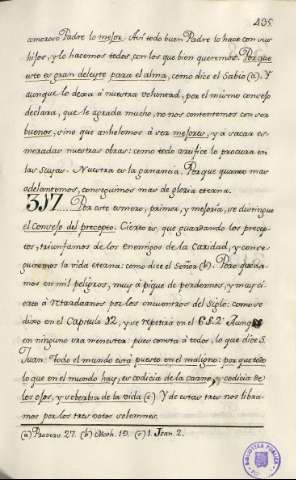 435
amoroso Padre lo mejor. Así todo buen Padre lo hace con sus
hijos, y lo hacemos todos, con los que bien queremos. Porque
esto es gran deleyte para el alma, como dice el Sabio (a). Y
aunque lo dexa á nuestra voluntad, por el mismo consejo
declara, que le agrada mucho, no nos contentemos con ser
buenos, sino que anhelemos á ser mejores, y á sacar es-
meradas nuestras obras: como todo artífice lo procura en
las suyas. Nuestra es la ganancia. Porque quanto mas
adelantemos, conseguimos mas de gloria eterna.
317 Por este esmero, primor, y mejoría, se distingue
el Consejo del precepto. Cierto es, que guardando los precep-
tos, triunfamos de los enemigos de la Caridad, y conse-
guiremos la vida eterna: como dice el Señor (b). Pero queda-
mos en mil peligros, muy á pique de perdernos, y muy ci-
erto á retardarnos por los encuentros del Siglo: como se
dixo en el Capítulo 12, y se repetirá en el C. S. 2. Aunq
en ninguno era menester, pues consta á todos, lo que dice S.
Juan: Todo el mundo está puesto en el maligno: porque todo
lo que en el mundo hay, es codicia de la carne, y codicia de
los ojos, y soberbia de la vida (c). Y de estas tres nos libra-
mos por los tres votos solemnes.
(a) Proverb. 27. (b) Math. 19. (c) 1. Joan. 2.
BIBLIOTECA PUBLICA